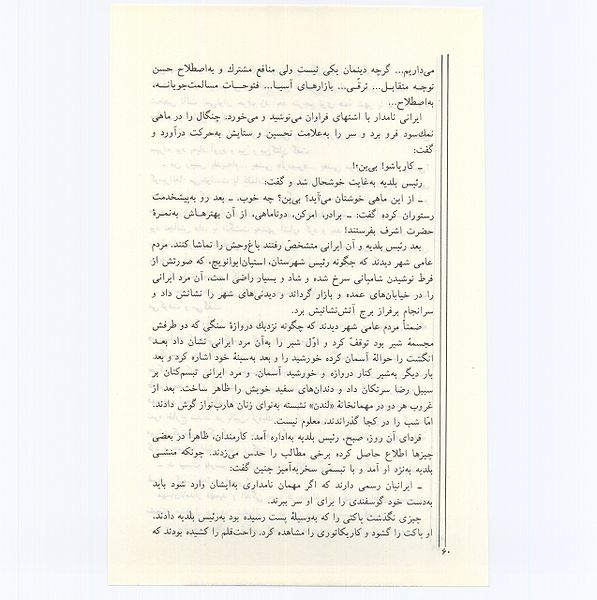 می‌داریم... گرچه دینمان یکی نیست ولی منافع مشترك و به‌اصطلاح حسن
توجـه متقابـل... ترقّـی... بازارهـای آسیـا... فتوحـات مسالمت‌جویانـه،
به‌اصطلاح...
ایرانی نامدار با اشتهای فراوان می‌نوشید و می‌خورد. چنگال را در ماهی
نمك‌سود فرو برد و سر را به‌علامت تحسین و ستایش به‌حرکت درآورد و
گفت:
ـ کارباشو! بی‌ین!
رئیس بلدیه به‌غایت خوشحال شد و گفت:
ـ از این ماهی خوشتان می‌آید؟ بی‌ین؟ چه خوب. ـ بعد رو به‌پیشخدمت
رستوران کرده گفت: ـ برادر، امرکن، دوتاماهی، از آن بهترهـاش به‌نمرهٔ
حضرت اشرف بفرستند!
بعد رئیس بلدیه و آن ایرانی متشخّص رفتند باغ‌وحش را تماشا کنند. مردم
عامی شهر دیدند که چگونه رئیس شهرستان، استپان‌ایوانویچ، که صورتش از
فرط نوشیدن شامپانی سرخ شده و شاد و بسیار راضی است، آن مرد ایرانی
را در خیابان‌های عمده و بازار گرداند و دیدنی‌های شهر را نشانش داد و
سرانجام برفراز برج آتش‌نشانیش برد.
ضمناً مردم عامی شهر دیدند که چگونه نزدیك دروازهٔ سنگی که دو طرفش
مجسمهٔ شیر بود توقف کرد و اوّل شیر را به‌آن مرد ایرانی نشان داد بعـد
انگشت را حوالهٔ آسمان کرده خورشید را و بعد به‌سینهٔ خود اشاره کرد و بعد
بار دیگر به‌شیر کنار دروازه و خورشید آسمان. و مرد ایرانی تبسم‌کنان بر
سبیل رضا سرتکان داد و دندان‌های سفید خویش را ظاهر ساخت. بعد از
غروب هر دو در مهمانخانهٔ «لندن» نشسته به‌نوای زنان هارپ‌نواز گوش دادند.
امّا شب را در کجا گذراندند، معلوم نیست.
فردای آن روز، صبح، رئیس بلدیه به‌اداره آمد. کارمندان، ظاهراً در بعضی
چیزها اطلاع حاصل کرده برخی مطالب را حدس می‌زدند. چونکه منشـی
بلدیه به‌نزد او آمد و با تبسمّی سخریه‌آمیز چنین گفت:
ـ ایرانیان رسمی دارند که اگر مهمان نامداری به‌ایشان وارد شود باید
به‌دست خود گوسفندی را برای او سر ببرند.
چیزی نگذشت پاکتی را که به‌وسیلهٔ پست رسیده بود به‌رئیس بلدیه دادند.
او پاکت را گشود و کاریکاتوری را مشاهده کرد. راحت‌قلم را کشیده بودند که
۶۰